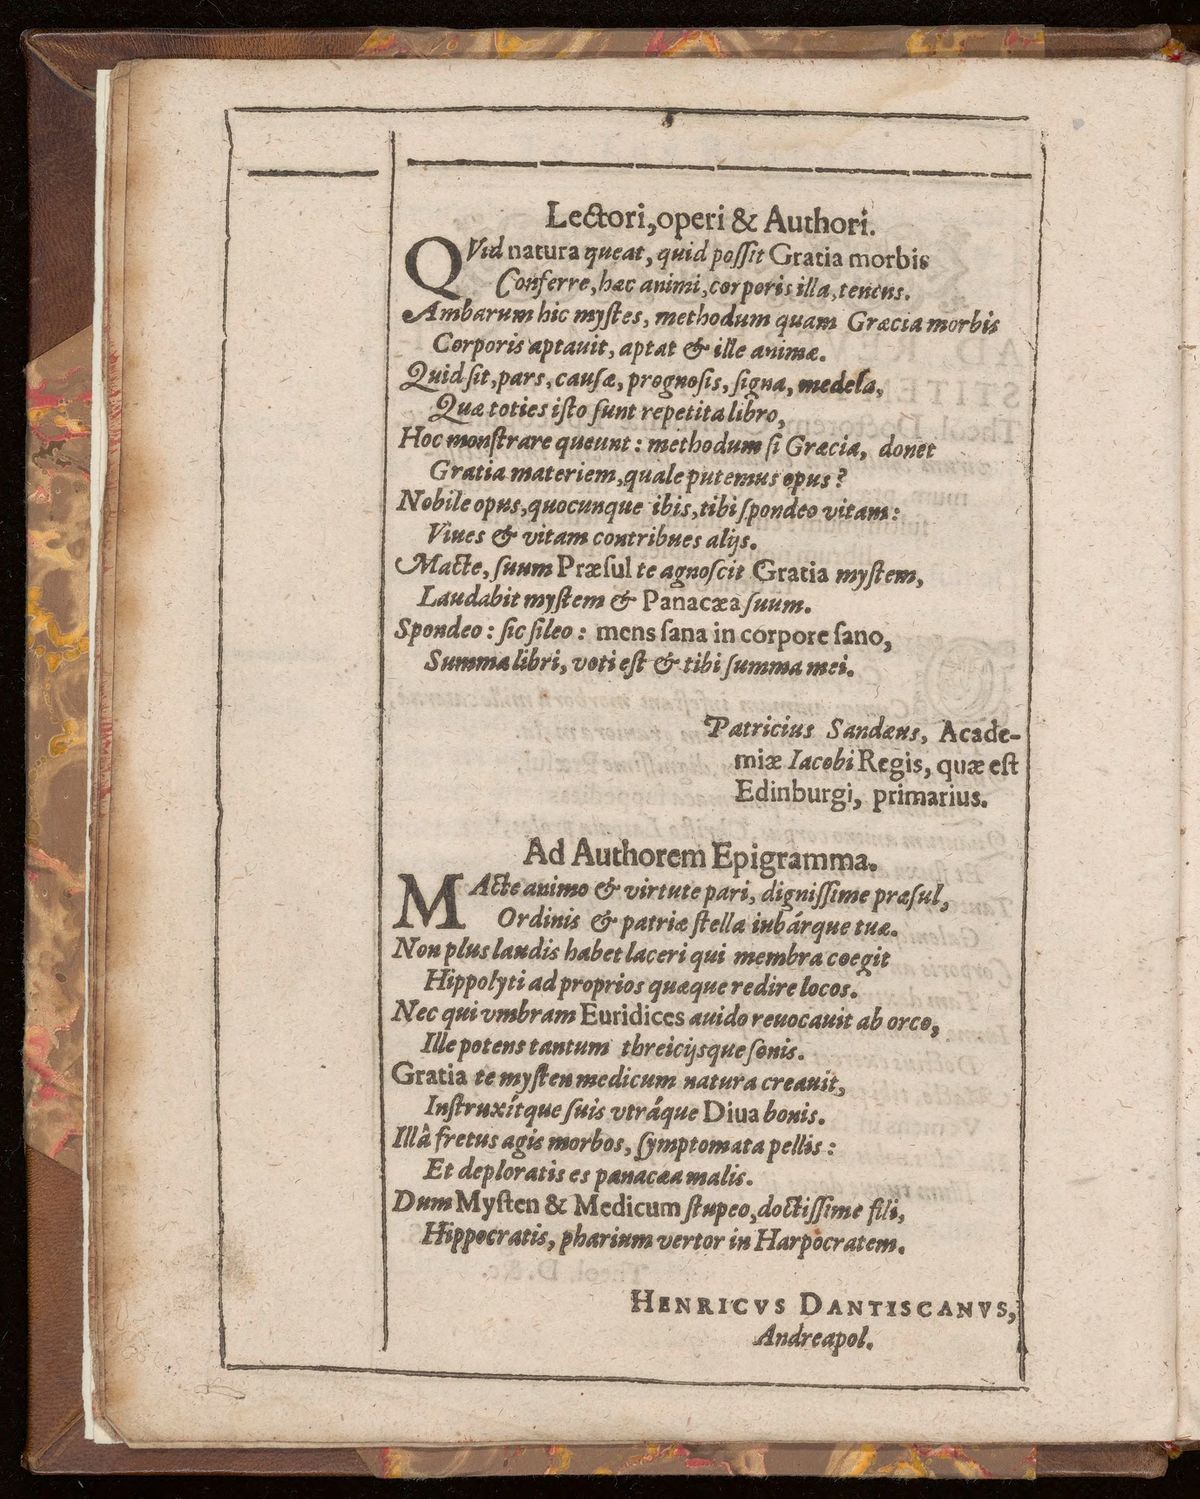 Lectori, operi & Authori.
QVid natura queat, quid possit Gratia morbis
Conferre, hæc animi, corporis illa, tenens.
Ambarum hic mystes, methodum quam Græcia morbis
Corporis aptauit, aptat & ille animæ.
Quid sit, pars, causæ, prognosis, signa, medela,
Quæ toties isto sunt repetita libro,
Hoc monstrare queunt: methodum si Græcia, donet
Gratia materiem, quale putemus opus?
Nobile opus, quocunque ibis, tibi spondeo vitam:
Viues & vitam contribues alijs.
Macte, suum Præsul te agnoscit Gratia mystem,
Laudabit mystem & Panacæa suum.
Spondeo: sic sileo: mens sana in corpore sano,
Summa libri, voti est & tibi summa mei.
Patricius Sandæus, Acade-
miæ Iacobi Regis, quæ est
Edinburgi, primarius.
Ad Authorem Epigramma.
MActe animo & virtute pari, dignissime præsul,
Ordinis & patriæ stella iubárque tuæ.
Non plus laudis habet laceri qui membra coegit
Hippolyti ad proprios quæque redire locos.
Nec qui vmbram Euridices auido reuocauit ab orco,
Ille potens tantum threicijsque sonis.
Gratia te mysten medicum natura creauit,
Instruxítque suis vtráque Diua bonis.
Illâ fretus agis morbos, symptomata pellis:
Et deploratis es panacæa malis.
Dum Mysten & Medicum stupeo, doctissime fili,
Hippocratis, pharium vertor in Harpocratem.
HENRICVS DANTISCANVS,
Andreapol.